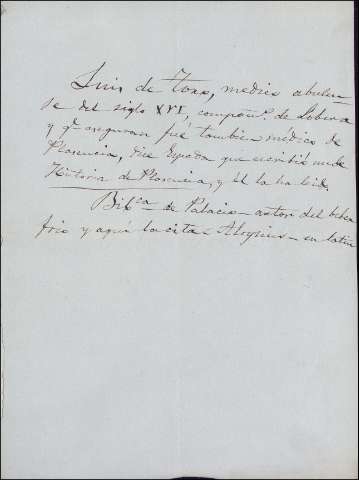 Luis de Toro, medico abulen-
se del siglo XVI, compañº. de Lobera
y qe. aseguran fué tambien médico de
Plasencia, dice Cepeda que escribió una
Historia de Plasencia, y él la ha leido,
Bibca. de Palacio - autor del beber
frio y aqui la cita - Aloysius - en latin